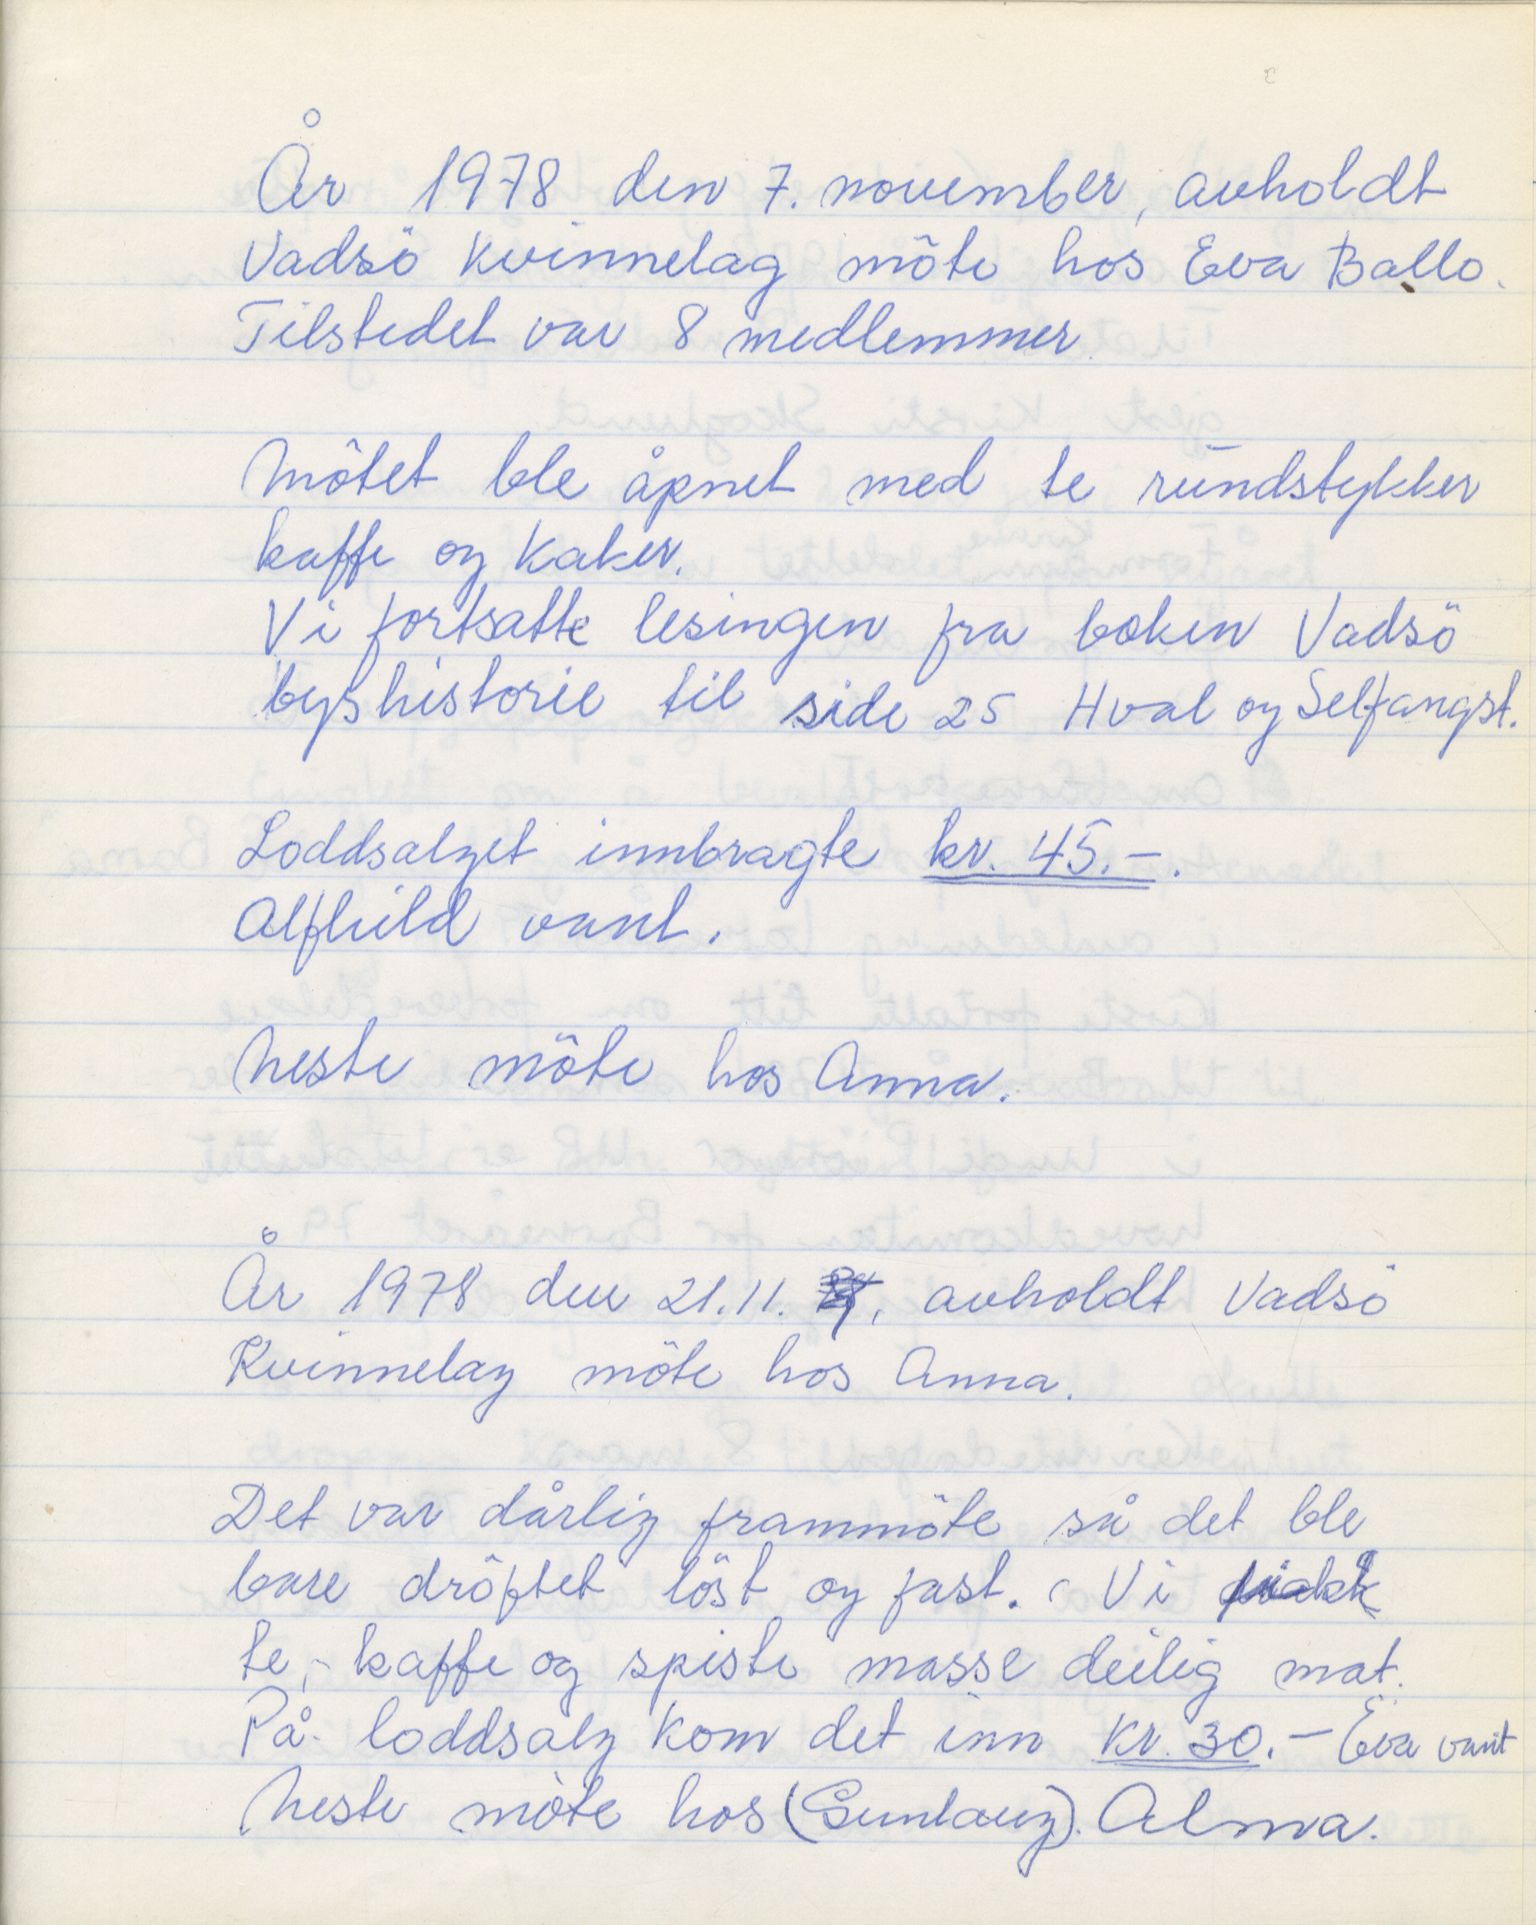 År 1978 den 7. november, avholdt
Vadsö Kvinnelag möte hos Eva Ballo.
Tilstedet var 8 medlemmer
Mötet ble åpnet med te rundstykker
kaffe og kaker.
Vi fortsatte lesingen fra boken Vadsö
byshistorie til side 25 Hval og Selfangst.
Loddsalget innbragte kr. 45.-.
Alfhild vant.
Neste möte hos Anna.
År 1978 den 21.11. avholdt Vadsö
Kvinnelag möte hos Anna.
Det var dårlig frammöte så det ble
bare dröftet löst og fast. Vi drakk
te,- kaffe og spiste masse deilig mat.
På loddsalg kom det inn Kr. 30.- Eva vant
Neste möte hos (Gunlaug). Alma.